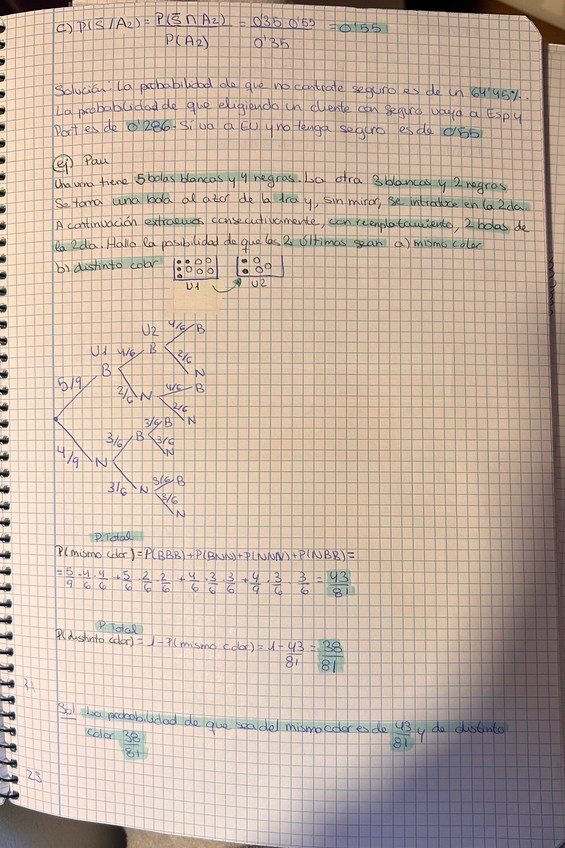 c) P(S̅/A2) = P(S̅ ∩ A2) / P(A2) = 0'35·0'55 / 0'35 = 0'55
Solución: La probabilidad de que no contrate seguro es de un 64'45%.
La probabilidad de que eligiendo un cliente con seguro vaya a Esp y
Port es de 0'286. Si va a EU y no tenga seguro es de 0'55
ej) Pau
Una urna tiene 5 bolas blancas y 4 negras. La otra 3 blancas y 2 negras
Se toma una bola al azar de la 1ra y, sin mirar, se introduce en la 2da.
A continuación extraemos consecutivamente, con reemplazamiento, 2 bolas de
la 2da. Halla la posibilidad de que las 2 últimas sean a) mismo color
b) distinto color
U1 U2
U2 4/6 B
U1 4/6 B 2/6 N
5/9 B 2/6 N 4/6 B
2/6 N
4/9 N 3/6 B 3/6 B
3/6 N
3/6 N 3/6 B
3/6 N
P. Total
P(mismo color) = P(BBB) + P(BNN) + P(NNN) + P(NBB) =
= 5/9 · 4/6 · 4/6 + 5/6 · 2/6 · 2/6 + 4/6 · 3/6 · 3/6 + 4/9 · 3/6 · 3/6 = 43/81
P. Total
P(distinto color) = 1 - P(mismo color) = 1 - 43/81 = 38/81
31
Sol: La probabilidad de que sea del mismo color es de 43/81 y de distinto
color 38/81
25